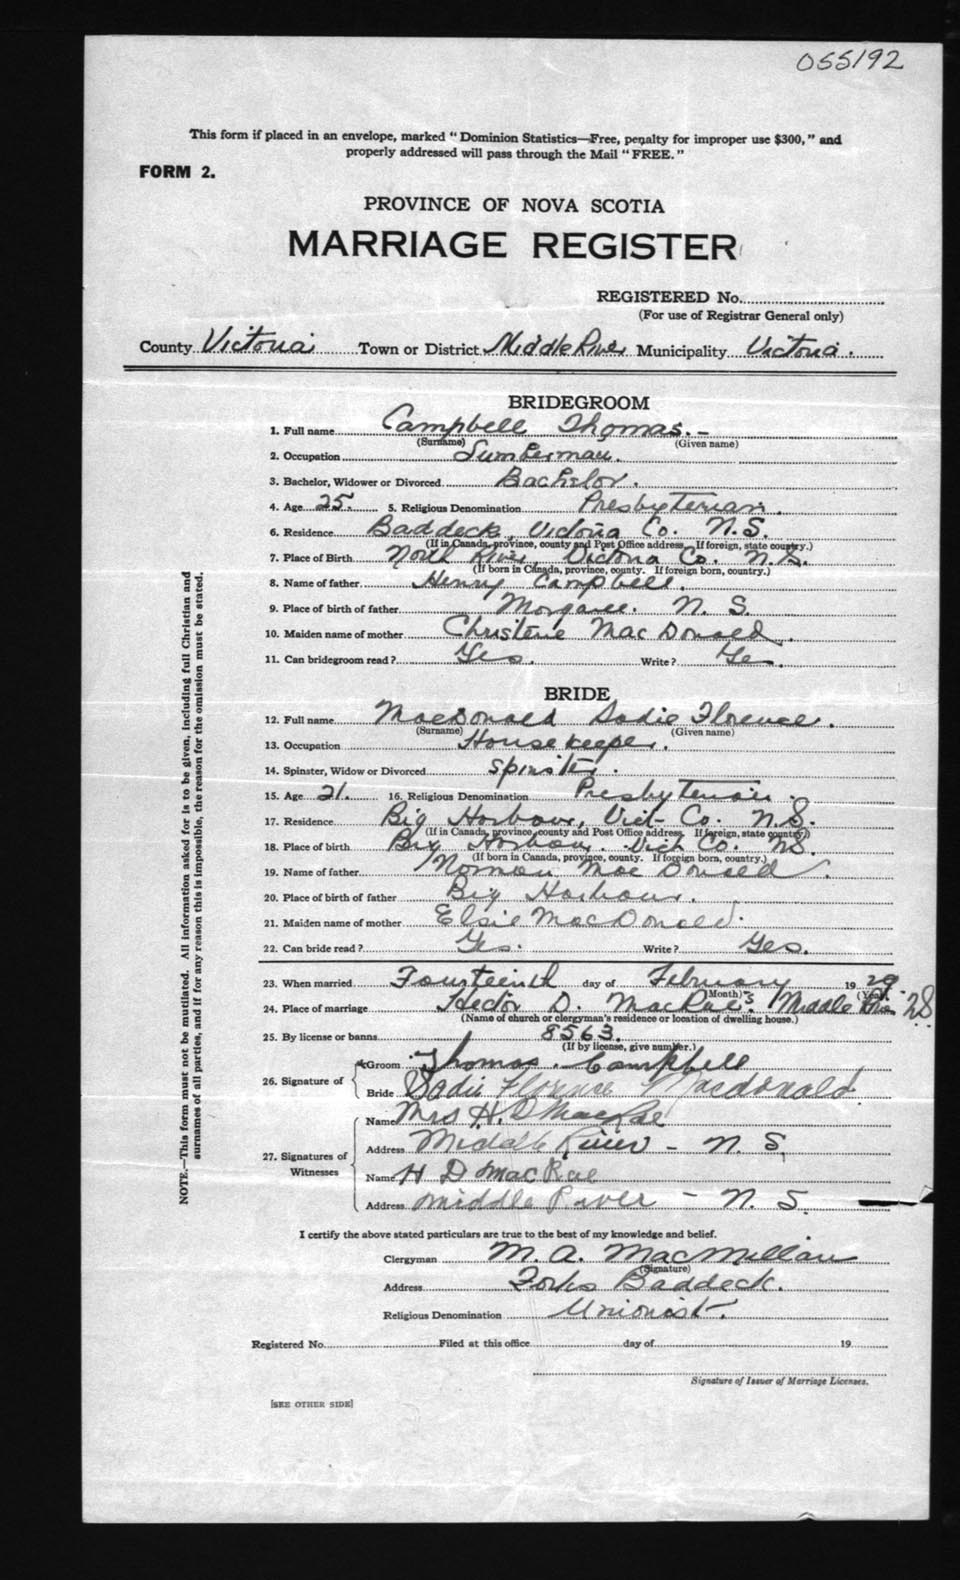 055192
This form if placed in an envelope, marked "Dominion Statistics—Free, penalty for improper use $300," and
properly addressed will pass through the Mail "FREE."
FORM 2.
PROVINCE OF NOVA SCOTIA
MARRIAGE REGISTER
REGISTERED No.
(For use of Registrar General only)
County Victoria Town or District Middle River Municipality Victoria.
BRIDEGROOM
1. Full name Campbell Thomas.
(Surname) (Given name)
2. Occupation Lumberman.
3. Bachelor, Widower or Divorced Bachelor.
4. Age 25. 5. Religious Denomination Presbyterian.
6. Residence Baddeck, Victoria Co. N.S.
(If in Canada, province, county and Post Office address. If foreign, state country.)
7. Place of Birth North River, Victoria Co. N.S.
(If born in Canada, province, county. If foreign born, country.)
8. Name of father Henry Campbell.
9. Place of birth of father Morgaree. N. S.
10. Maiden name of mother Christene MacDonald.
11. Can bridegroom read? Yes. Write? Ye
BRIDE
12. Full name MacDonald Sadie Florence.
(Surname) (Given name)
13. Occupation Housekeeper.
14. Spinster, Widow or Divorced Spinster.
15. Age 21. 16. Religious Denomination Presbyterian.
17. Residence Big Harbour, Vict Co. N.S.
(If in Canada, province, county and Post Office address. If foreign, state country)
18. Place of birth Big Harbour. Vict Co. NS.
(If born in Canada, province, county. If foreign born, country.)
19. Name of father Norman MacDonald.
20. Place of birth of father Big Harbour.
21. Maiden name of mother Elsie MacDonald.
22. Can bride read? Yes. Write? Yes.
23. When married Fourteenth day of February 1929.
(Month) (Year)
24. Place of marriage Hector D. MacRae's Middle River 28
(Name of church or clergyman's residence or location of dwelling house.)
25. By license or banns 8563.
(If by license, give number.)
26. Signature of
Groom Thomas. Campbell
Bride Sadie Florence Macdonald.
27. Signatures of Witnesses
Name Mrs H. D MacRae
Address Middle River - N. S.
Name H D MacRae
Address Middle River - N. S.
I certify the above stated particulars are true to the best of my knowledge and belief.
Clergyman M. A. MacMillan
(Signature)
Address Forks Baddeck.
Religious Denomination Unionist.
Registered No. Filed at this office day of 19
Signature of Issuer of Marriage Licenses.
[SEE OTHER SIDE]
NOTE.—This form must not be mutilated. All information asked for is to be given, including full Christian and
surnames of all parties, and if for any reason this is impossible, the reason for the omission must be stated.